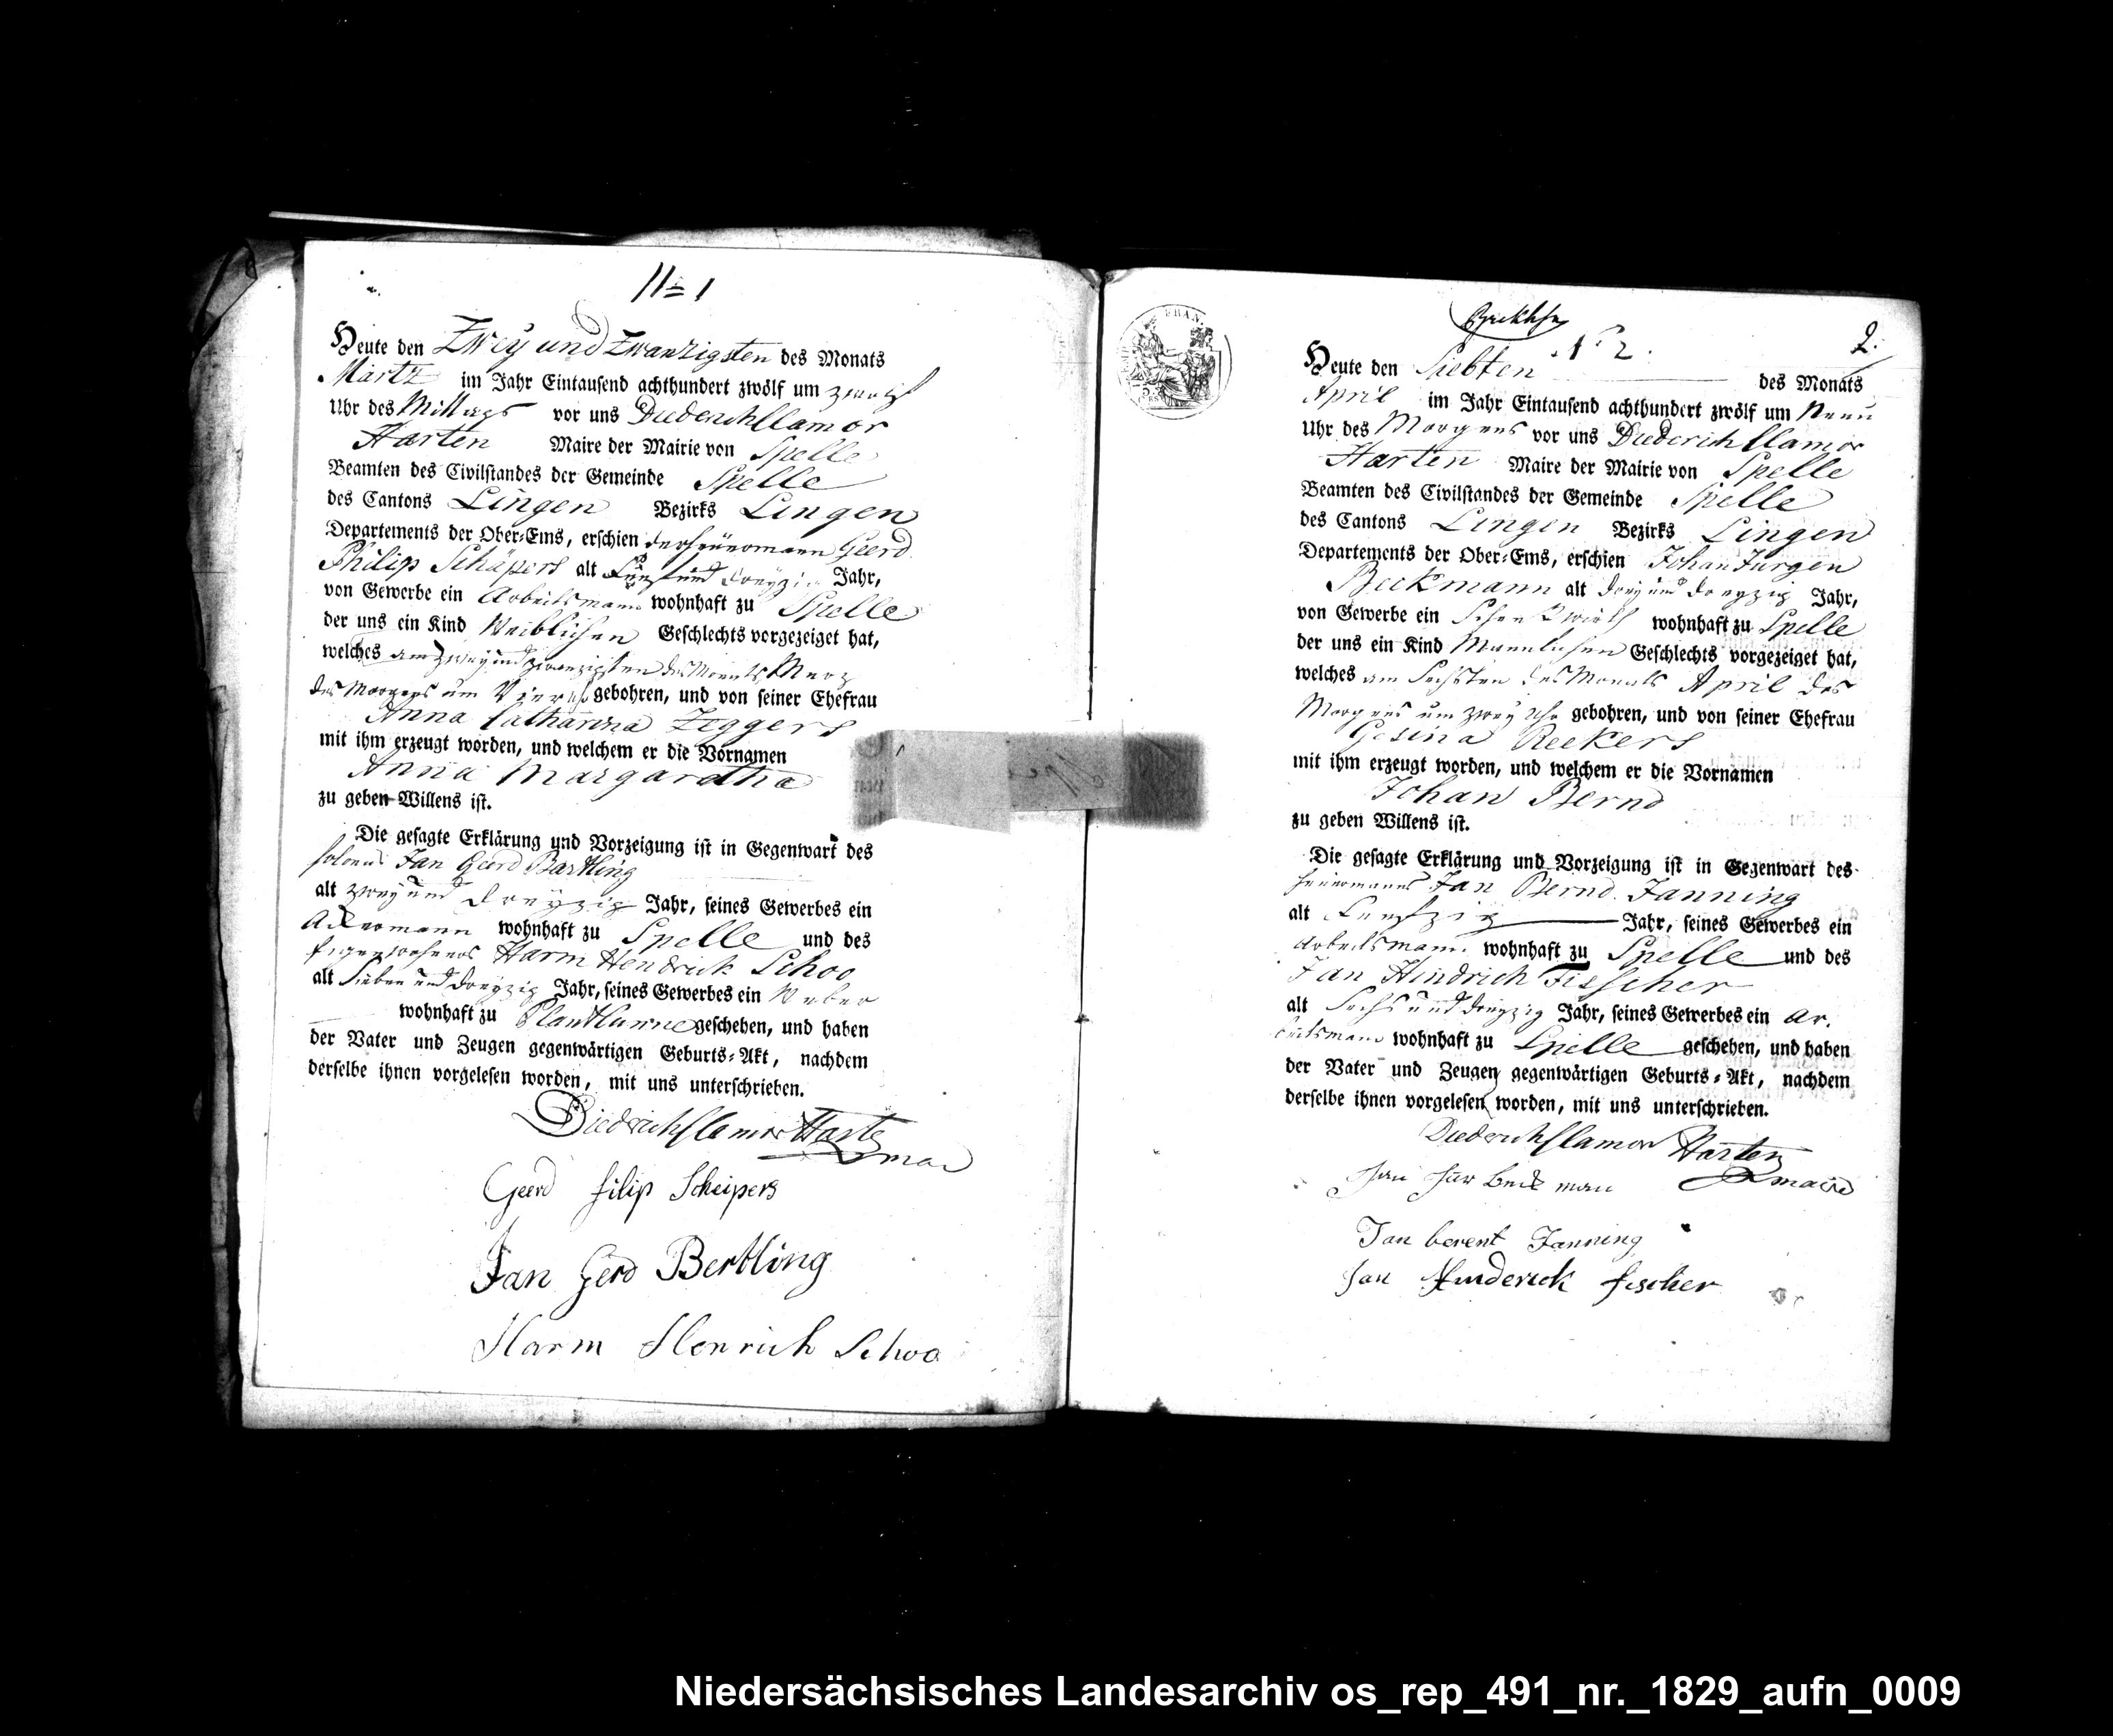 N 1
Heute den Zwey und Zwanzigsten des Monats
Märtz im Jahr Eintausend achthundert zwölf um zwolf
Uhr des Mittags vor uns Diederich Clamor
Harten Maire der Mairie von Spelle
Beamten des Civilstandes der Gemeinde Spelle
des Cantons Lingen Bezirks Lingen
Departements der Ober-Ems, erschien der heuermann Geerd
Philip Schäpers alt Fünf und dreyzig Jahr,
von Gewerbe ein Arbeitsmann wohnhaft zu Spelle
der uns ein Kind Weiblichen Geschlechts vorgezeiget hat,
welches am zwey und zwanzigsten des Monats Merz
des Morgens um Vier uhr gebohren, und von seiner Ehefrau
Anna Catharina Zeggers
mit ihm erzeugt worden, und welchem er die Vornamen
Anna Margaretha
zu geben Willens ist.
Die gesagte Erklärung und Vorzeigung ist in Gegenwart des
Jan Geerd Bartling
alt zwey und dreyzig Jahr, seines Gewerbes ein
Ackermann wohnhaft zu Spelle und des
Harm Hendrick Schoo
alt sieben und dreyzig Jahr, seines Gewerbes ein Weber
wohnhaft zu Plantlünne geschehen, und haben
der Vater und Zeugen gegenwärtigen Geburts-Akt, nachdem
derselbe ihnen vorgelesen worden, mit uns unterschrieben.
Diedrich Clamor Harten
Geerd filip Scheipers
Jan Gerd Bertling
Harm Henrich Schoo
FRAN
N 2.
2.
Heute den Siebten des Monats
April im Jahr Eintausend achthundert zwölf um Neun
Uhr des Morgens vor uns Diederich Clamor
Harten Maire der Mairie von Spelle
Beamten des Civilstandes der Gemeinde Spelle
des Cantons Lingen Bezirks Lingen
Departements der Ober-Ems, erschien Johan Jurgen
Beckmann alt drey und dreyzig Jahr,
von Gewerbe ein Schenkwirth wohnhaft zu Spelle
der uns ein Kind Mannlichen Geschlechts vorgezeiget hat,
welches am Sechsten des Monats April des
Morgens um zwey Uhr gebohren, und von seiner Ehefrau
Gesina Reekers
mit ihm erzeugt worden, und welchem er die Vornamen
Johan Bernd
zu geben Willens ist.
Die gesagte Erklärung und Vorzeigung ist in Gegenwart des
heuermanns Jan Bernd Janning
alt Funfzig Jahr, seines Gewerbes ein
Arbeitsmann wohnhaft zu Spelle und des
Jan Hindrich Fisscher
alt Sechs und dreyzig Jahr, seines Gewerbes ein Ar.
beitsmann wohnhaft zu Spelle geschehen, und haben
der Vater und Zeugen gegenwärtigen Geburts-Akt, nachdem
derselbe ihnen vorgelesen worden, mit uns unterschrieben.
Diederich Clamor Harten
maire
Jan Jur Beckman
Jan berent Janning
Jan Hinderick fischer
Niedersächsisches Landesarchiv os_rep_491_nr._1829_aufn_0009